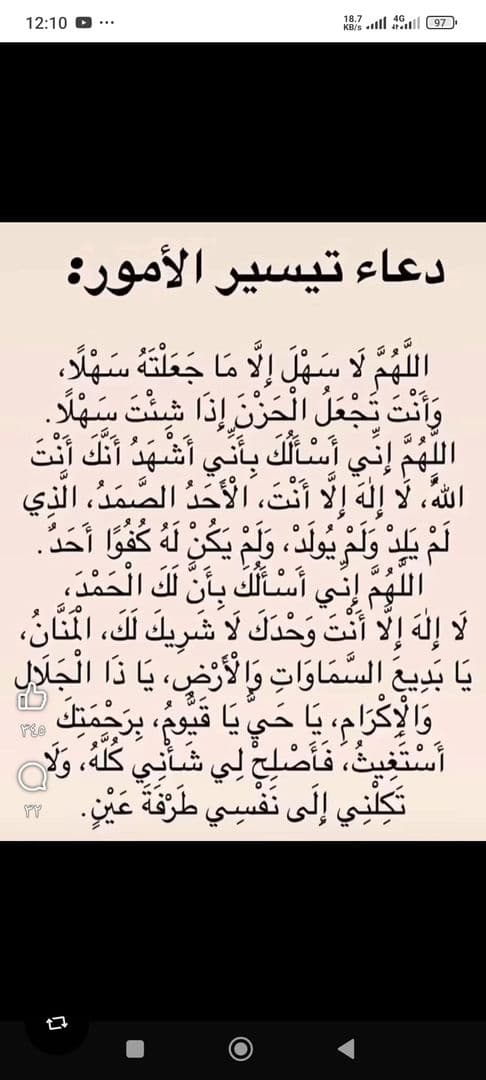 12:10
18.7 KB/s
4G
97
دعاء تيسير الأمور:
اللَّهُمَّ لَا سَهْلَ إِلَّا مَا جَعَلْتَهُ سَهْلًا،
وَأَنْتَ تَجْعَلُ الْحَزْنَ إِذَا شِئْتَ سَهْلًا.
اللَّهُمَّ إِنِّي أَسْأَلُكَ بِأَنِّي أَشْهَدُ أَنَّكَ أَنْتَ
اللهُ، لَا إِلَهَ إِلَّا أَنْتَ، الْأَحَدُ الصَّمَدُ، الَّذِي
لَمْ يَلِدْ وَلَمْ يُولَدْ، وَلَمْ يَكُنْ لَهُ كُفُوًا أَحَدٌ.
اللَّهُمَّ إِنِّي أَسْأَلُكَ بِأَنَّ لَكَ الْحَمْدَ،
لَا إِلَهَ إِلَّا أَنْتَ وَحْدَكَ لَا شَرِيكَ لَكَ، الْمَنَّانُ،
يَا بَدِيعَ السَّمَاوَاتِ وَالْأَرْضِ، يَا ذَا الْجَلَالِ
وَالْإِكْرَامِ، يَا حَيُّ يَا قَيُّومُ، بِرَحْمَتِكَ
أَسْتَغِيثُ، فَأَصْلِحْ لِي شَأْنِي كُلَّهُ، وَلَا
تَكِلْنِي إِلَى نَفْسِي طَرْفَةَ عَيْنٍ.
٣٤٥
٣٢